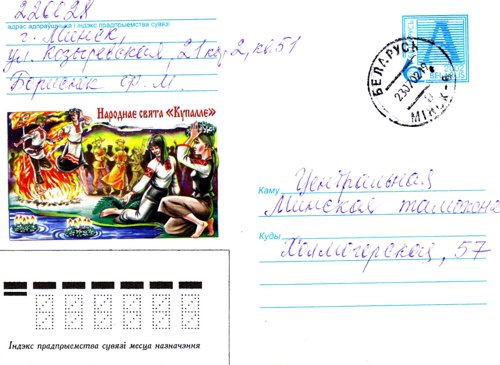 220028
адрас адпраўшчыка і індэкс прадпрыемства сувязі
г. Минск,
ул. Козыревская, 21 кор. 2, кв. 51
Ф. М.
Народнае свята «Купалле»
А
БЕЛАРУСЬ
МІНСК
Каму Центральная
Минская таможня
Куды
Холмогорская, 57
Індэкс прадпрыемства сувязі месца назначэння